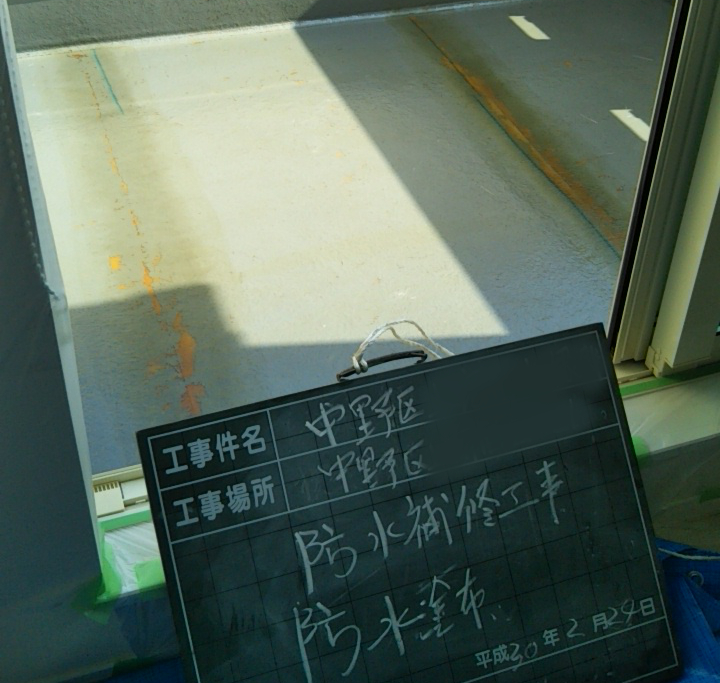 工事件名 中野区
工事場所 中野区
防水補修工事
防水塗布
平成30年2月24日